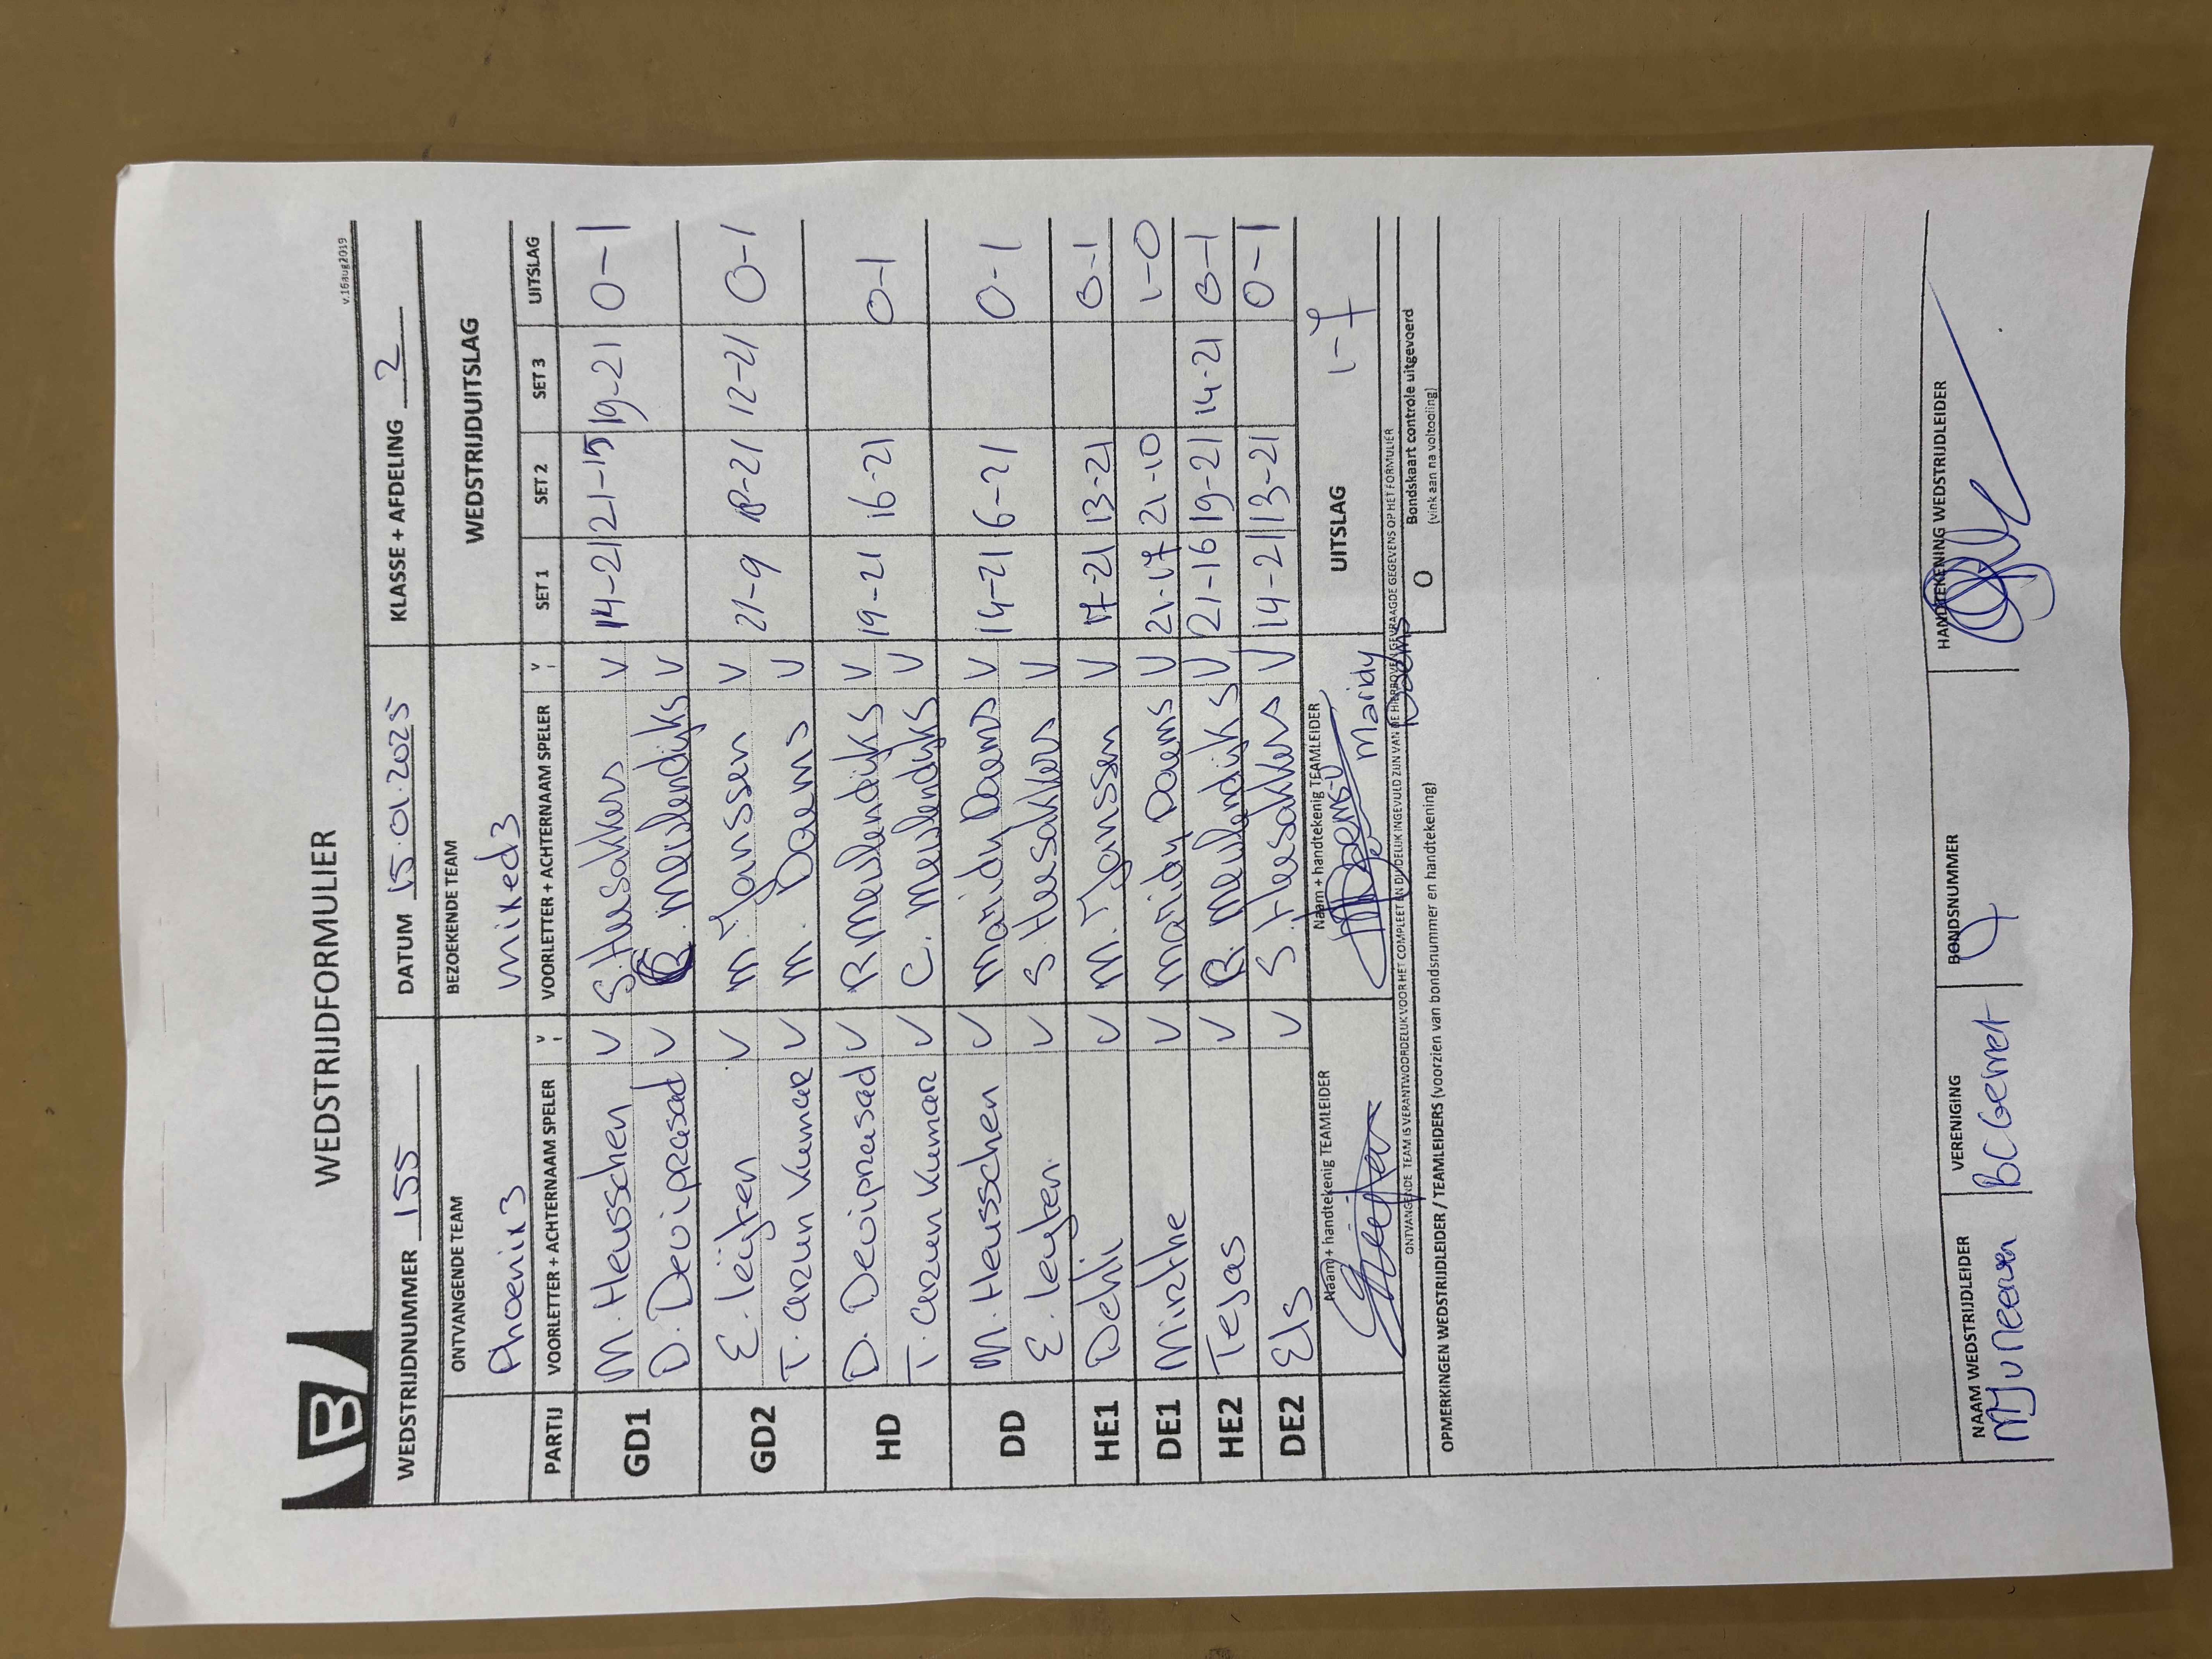 B
WEDSTRIJDFORMULIER
v.16aug2019
WEDSTRIJDNUMMER 155 DATUM 15.01.2025 KLASSE + AFDELING 2
ONTVANGENDE TEAM BEZOEKENDE TEAM WEDSTRIJDUITSLAG
Phoenix 3 mixed 3
PARTIJ VOORLETTER + ACHTERNAAM SPELER V VOORLETTER + ACHTERNAAM SPELER V SET 1 SET 2 SET 3 UITSLAG
GD1 M. Heusschen V S. Heesakkers V 14-21 21-15 19-21 0-1
D. Deviprasad V R. Meulendijks V
GD2 E. Leijten V M. Janssen V 21-9 18-21 12-21 0-1
T. Arun Kumar V M. Daems V
HD D. Deviprasad V R. Meulendijks V 19-21 16-21 0-1
T. Arun Kumar V C. Meulendijks V
DD M. Heusschen V Maridy Daems V 14-21 6-21 0-1
E. Leijten V S. Heesakkers V
HE1 Delhi V M. Janssen V 17-21 13-21 0-1
DE1 Mirthe V Maridy Daems V 21-17 21-10 1-0
HE2 Tejas V R. Meulendijks V 21-16 19-21 14-21 0-1
DE2 Els V S. Heesakkers V 14-21 13-21 0-1
Naam + handtekenig TEAMLEIDER Naam + handtekenig TEAMLEIDER UITSLAG 1-7
Maridy Daems
ONTVANGENDE TEAM IS VERANTWOORDELIJK VOOR HET COMPLEET EN DUIDELIJK INGEVULD ZIJN VAN DE HIERBOVEN GEVRAAGDE GEGEVENS OP HET FORMULIER
O Bondskaart controle uitgevoerd
(vink aan na voltooiing)
OPMERKINGEN WEDSTRIJDLEIDER / TEAMLEIDERS (voorzien van bondsnummer en handtekening)
NAAM WEDSTRIJDLEIDER VERENIGING BONDSNUMMER HANDTEKENING WEDSTRIJDLEIDER
BC Gemert